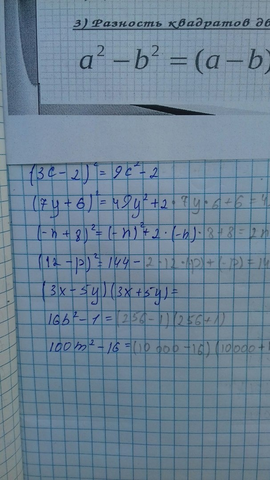 3) Разность квадратов дв
a² − b² = (a − b)
(3c − 2)² = 9c² − 2
(7y + 6)² = 49y² + 2 · 7y · 6 + 6 =
(-n + 8)² = (-n)² + 2 · (-n) · 8 + 8 = 2n
(12 − p)² = 144 − 2 · 12 · (p) + (-p) = 14
(3x − 5y)(3x + 5y) =
16b² − 1 = (256 − 1)(256 + 1)
100m² − 16 = (10 000 − 16)(10000 +